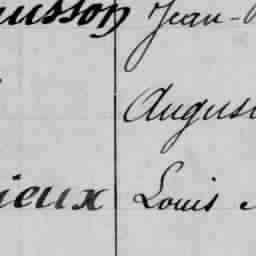 usson Jean-
August
ieux Louis